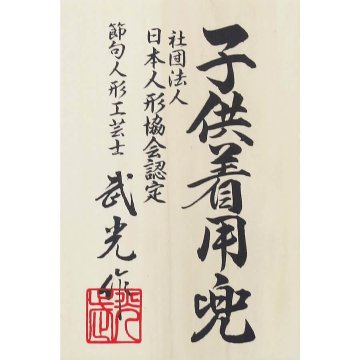 子供着用兜
社団法人
日本人形協会認定
節句人形工芸士
武光作